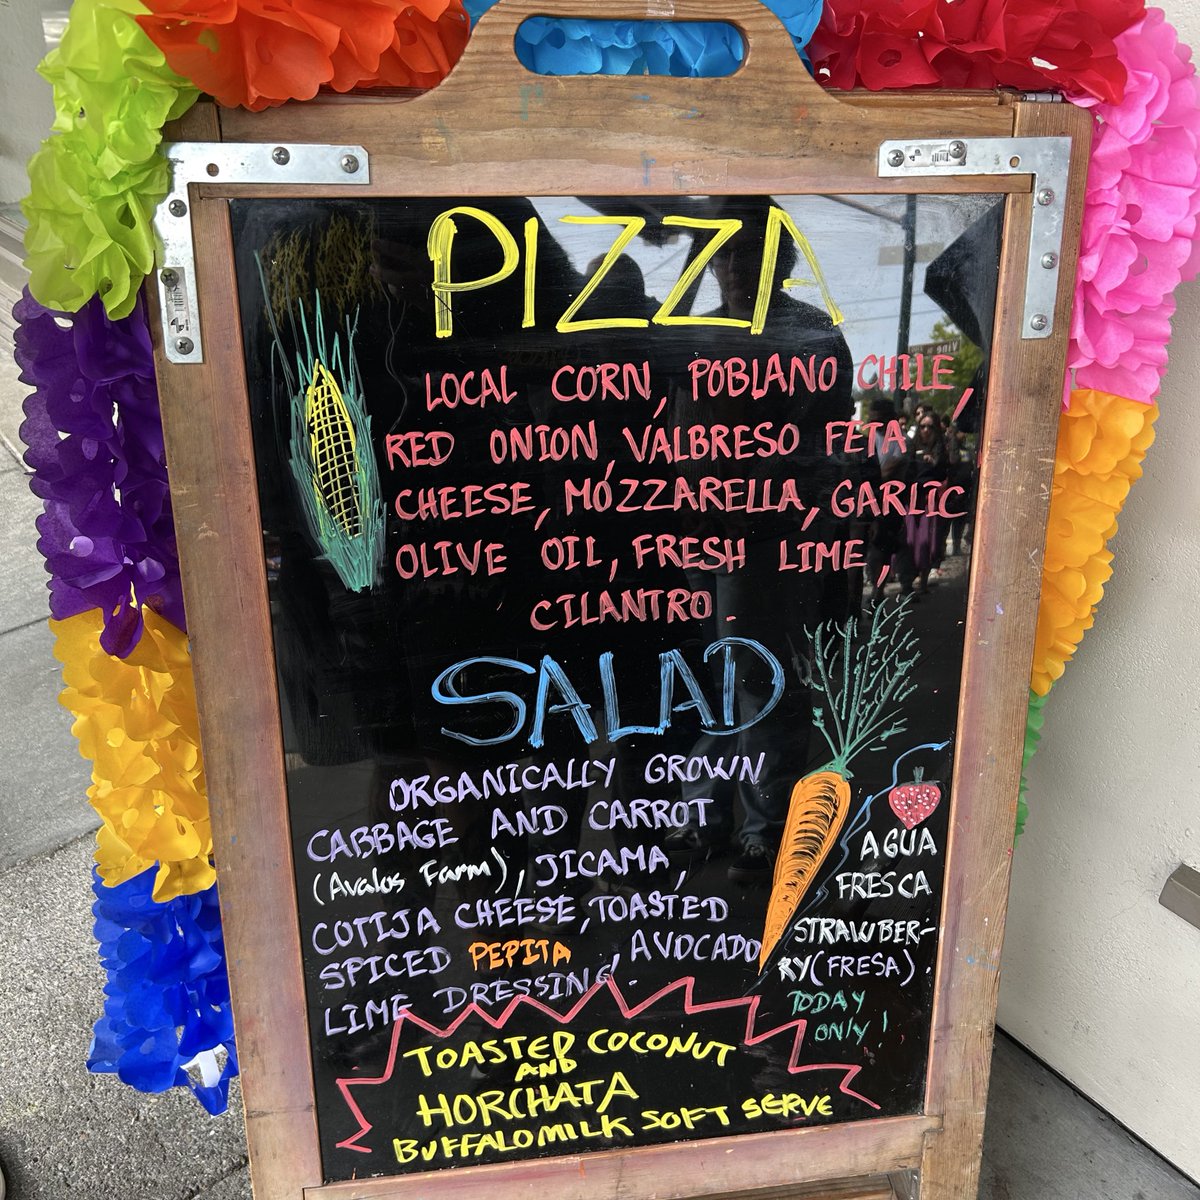 PIZZA
LOCAL CORN, POBLANO CHILE,
RED ONION, VALBRESO FETA
CHEESE, MOZZARELLA, GARLIC
OLIVE OIL, FRESH LIME,
CILANTRO.
SALAD
ORGANICALLY GROWN
CABBAGE AND CARROT
(Avalos Farm), JICAMA,
COTIJA CHEESE, TOASTED
SPICED PEPITA, AVOCADO
LIME DRESSING.
AGUA
FRESCA
STRAWBER-
RY (FRESA).
TODAY
ONLY!
TOASTED COCONUT
AND
HORCHATA
BUFFALOMILK SOFT SERVE